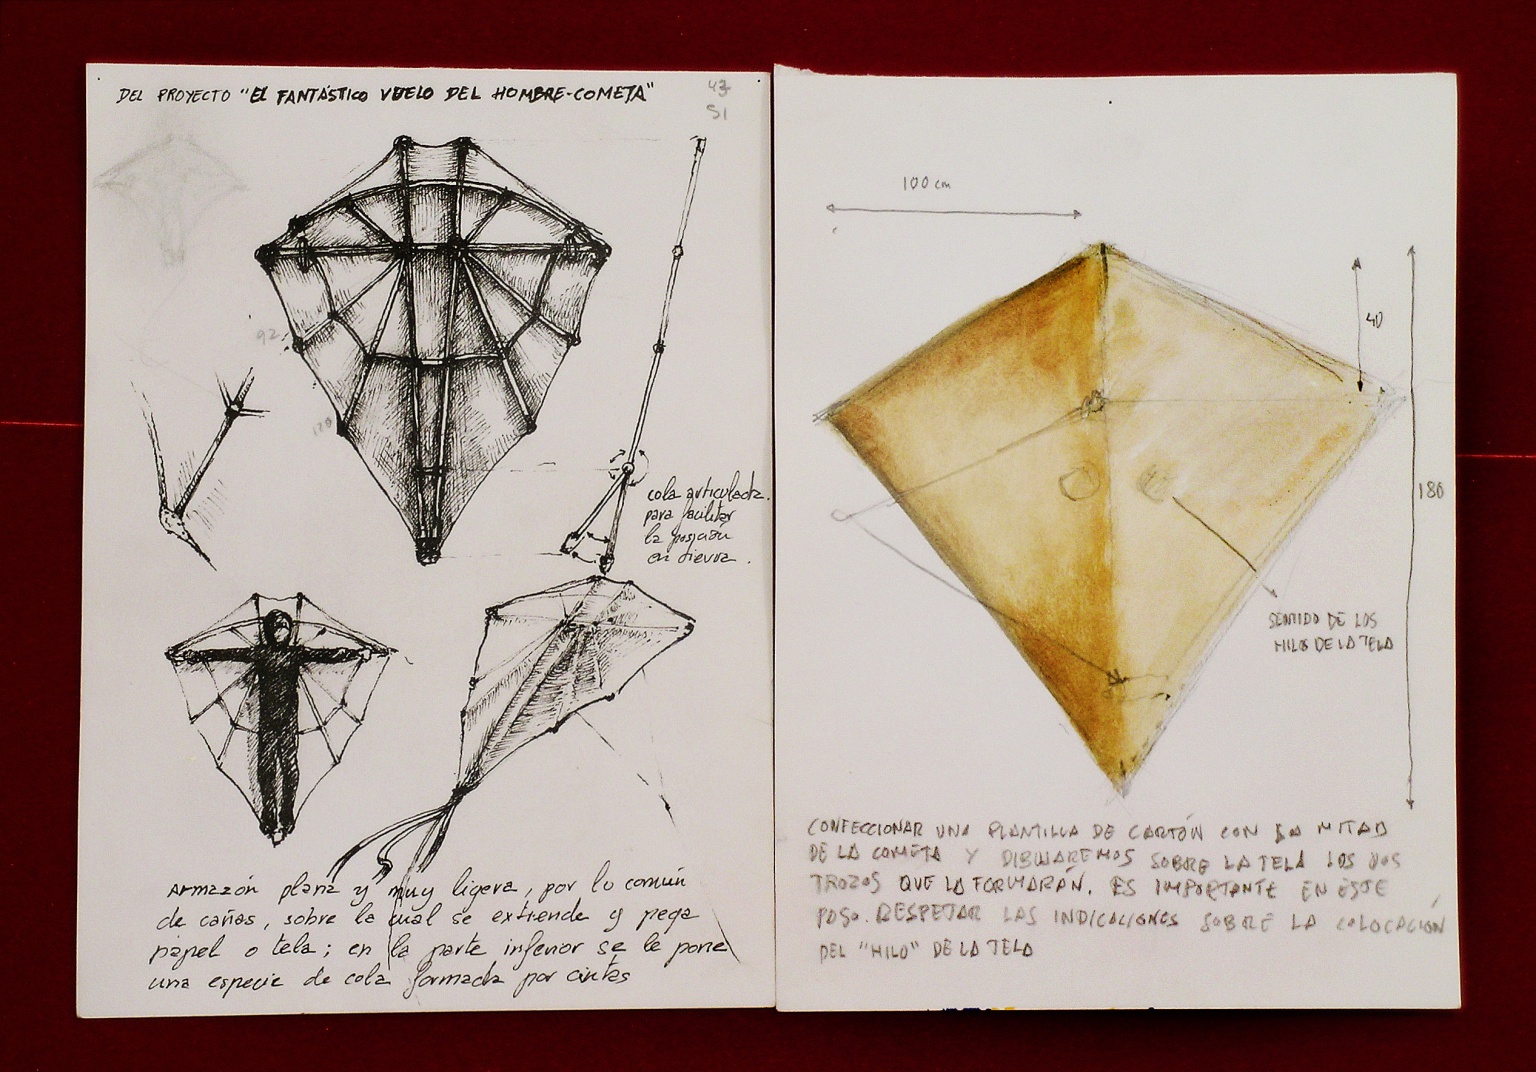 DEL PROYECTO "EL FANTÁSTICO VUELO DEL HOMBRE-COMETA"
43
51
92
120
cola articulada
para facilitar
la posición
en tierra.
Armazón plana y muy ligera, por lo común
de cañas, sobre la cual se extiende y pega
papel o tela; en la parte inferior se le pone
una especie de cola formada por cintas
100 cm
40
180
SENTIDO DE LOS
HILOS DE LA TELA
CONFECCIONAR UNA PLANTILLA DE CARTÓN CON LA MITAD
DE LA COMETA Y DIBUJAREMOS SOBRE LA TELA LOS DOS
TROZOS QUE LA FORMARÁN. ES IMPORTANTE EN ESTE
PASO RESPETAR LAS INDICACIONES SOBRE LA COLOCACIÓN
DEL "HILO" DE LA TELA